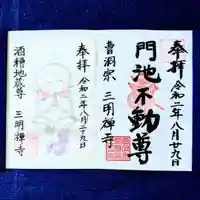 奉拝
令和二年八月廿九日
門池不動尊
曹洞宗
三明禅寺
奉拝
令和二年八月廿九日
酒糟地蔵尊
三明禅寺